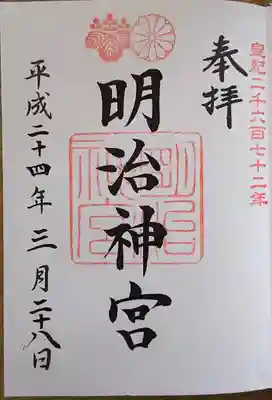 皇紀二千六百七十二年
奉拝
明治神宮
明治神宮
平成二十四年三月二十八日